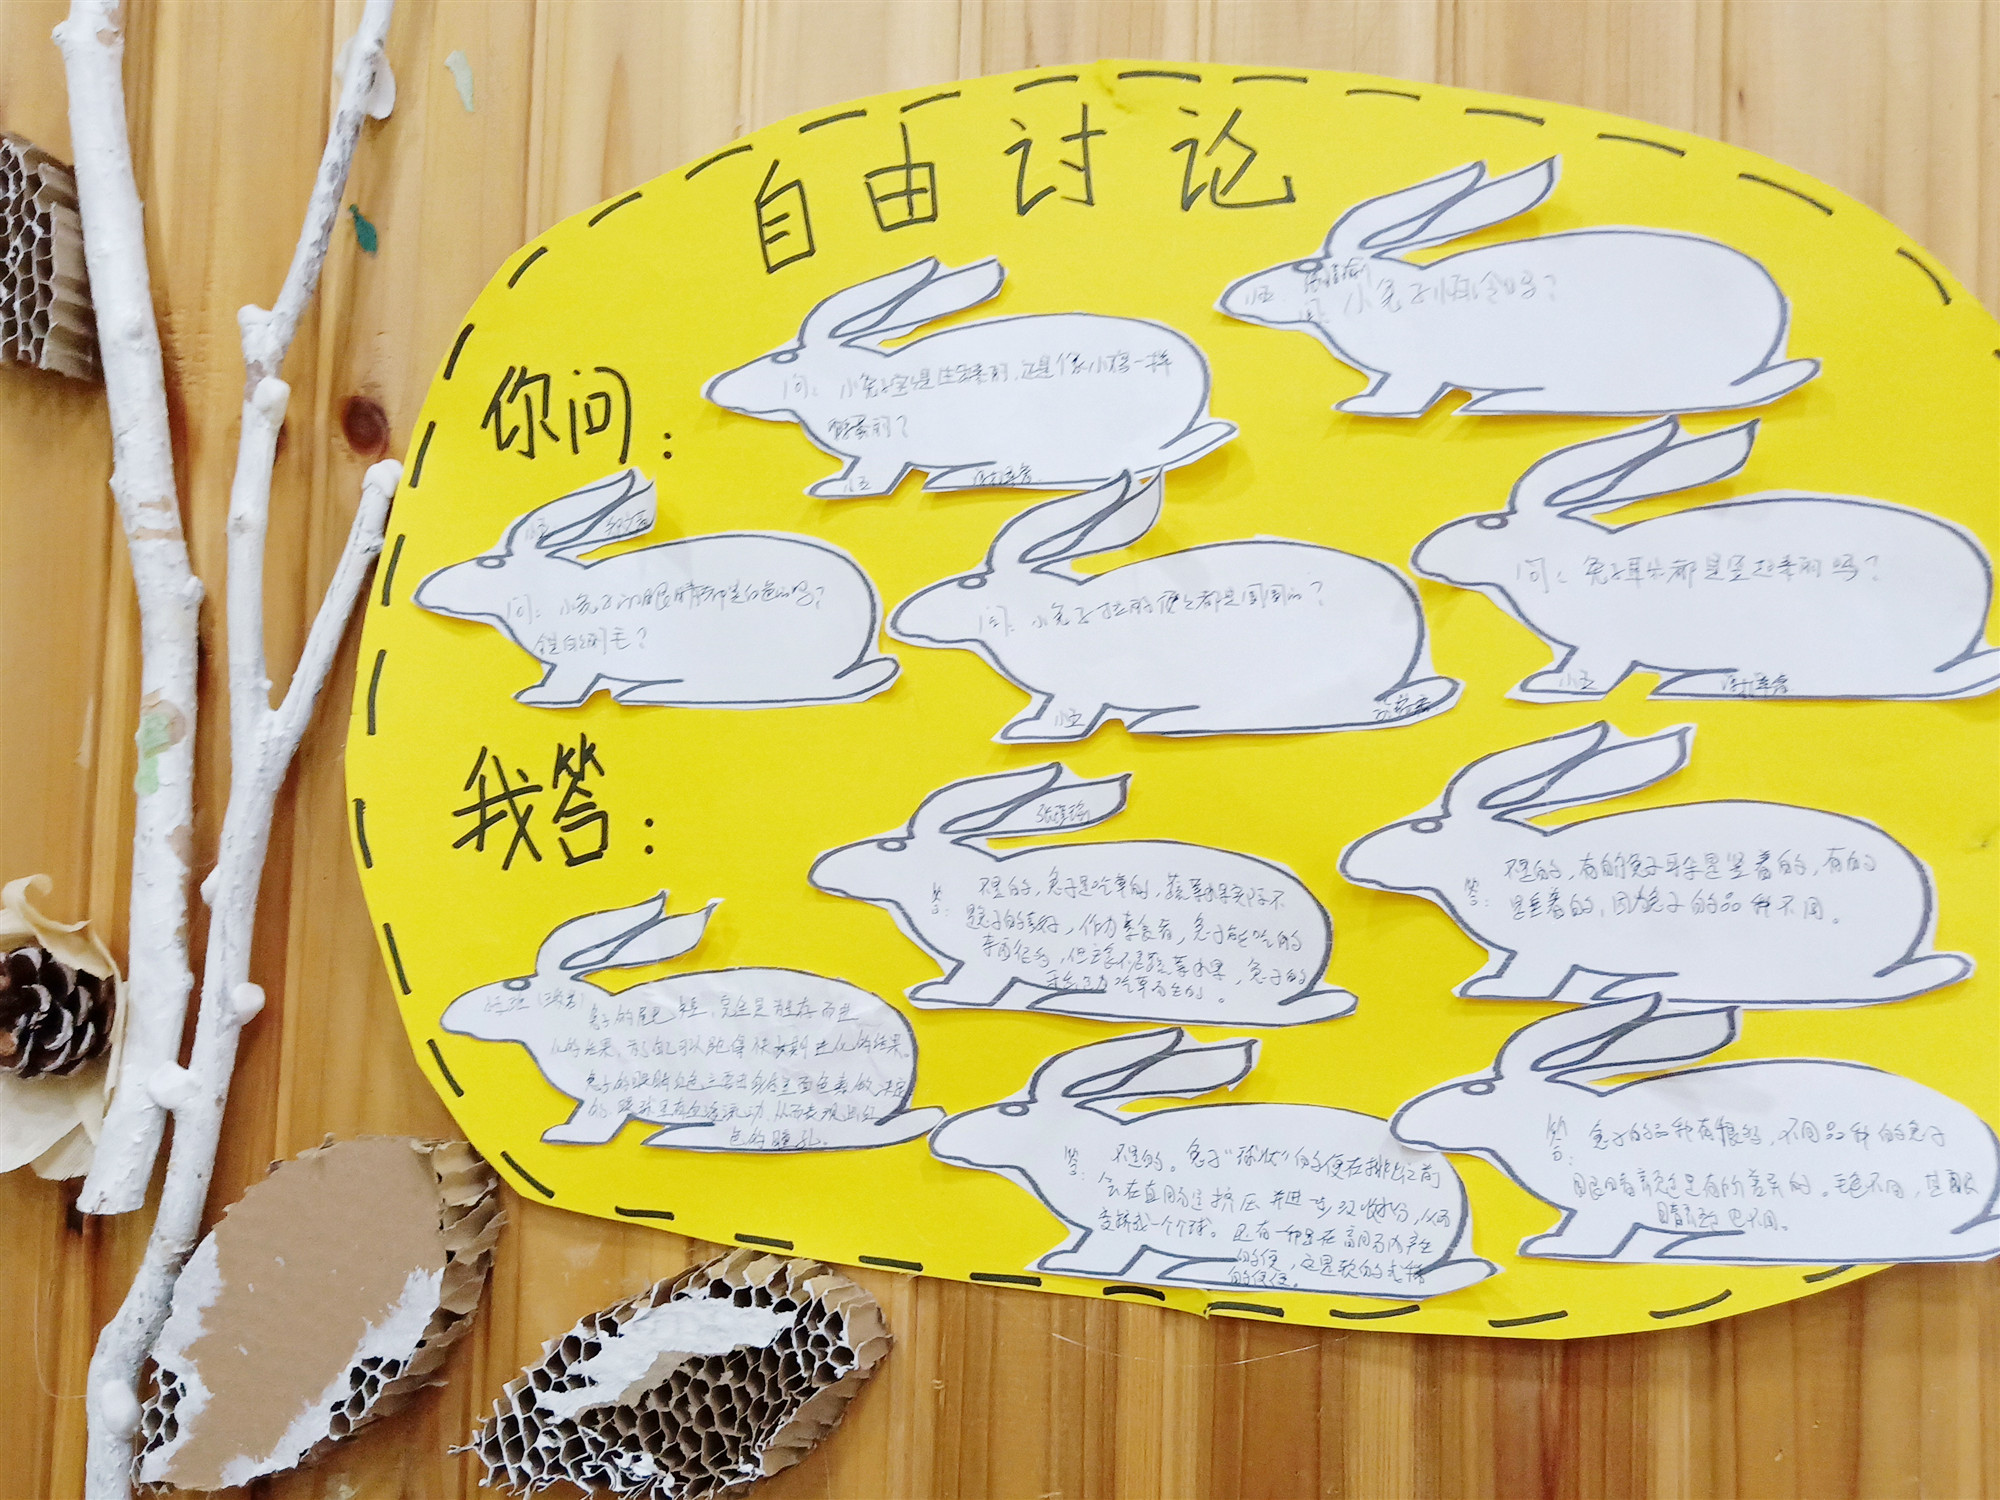 自由讨论
你问：
小五
问：小兔子怕冷吗？
问：小兔子宝宝是生出来的，还是像小鸡一样
孵蛋的？
小五
小五
问：小兔子的眼睛都是红色的吗？
全是白色的毛？
问：小兔子拉的便便都是圆圆的？
小五
问：兔子耳朵都是竖起来的吗？
小五
我答：
答：不是的，兔子是吃草的，蔬菜水果
兔子的，作为素食者，兔子能吃的
东西很多，但主食不是蔬菜水果，兔子的
牙齿是为吃草而生的。
答：不是的，有的兔子耳朵是竖着的，有的
是垂着的，因为兔子的品种不同。
兔子的尾巴短，完全是生存而进
化的结果，为了可以跑得快长期进化的结果。
兔子的眼睛红色主要由身体里面色素
的，眼球里有血液流动，从而表现出红
色的瞳孔。
答：不是的。兔子“球状”的粪便在排出之前
会在直肠受挤压并进一步吸收水分，从而
变成一个个球。还有一种是在盲肠内产生
的粪便，这是软的
的便便。
答：兔子的品种有很多，不同品种的兔子
眼睛颜色是有所差异的。毛色不同，其眼
睛颜色也不同。